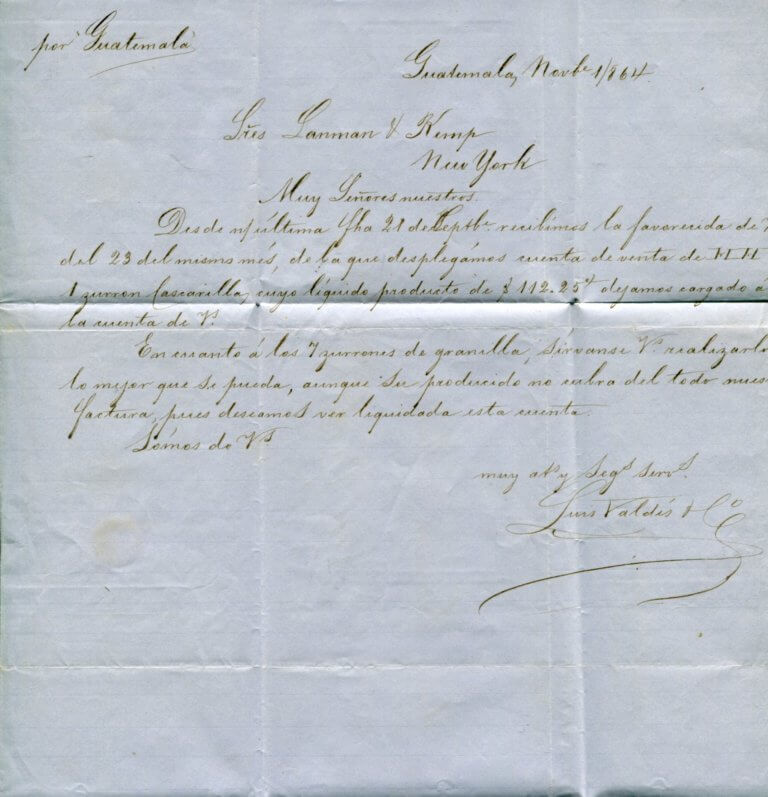 por "Guatemala"
Guatemala, Novbe 1/864.
Sres Lanman & Kemp
New York
Muy Señores nuestros.
Desde n/última fha 21 de Septbe. recibimos la favorecida de V
del 23 del mismo més, de la que desplegámos cuenta de venta de HH
1 zurron Cascarilla, cuyo líquido producto de $112.25 dejamos cargado á
la cuenta de Vs.
En cuanto á los 7 zurrones de granilla, sirvanse Vs. realizarlo
lo mejor que se pueda, aunque su producido no cubra del todo nues
factura, pues deseamos ver liquidada esta cuenta.
Sómos de Vs.
muy atos y segs servs.
Luis Valdés & Co